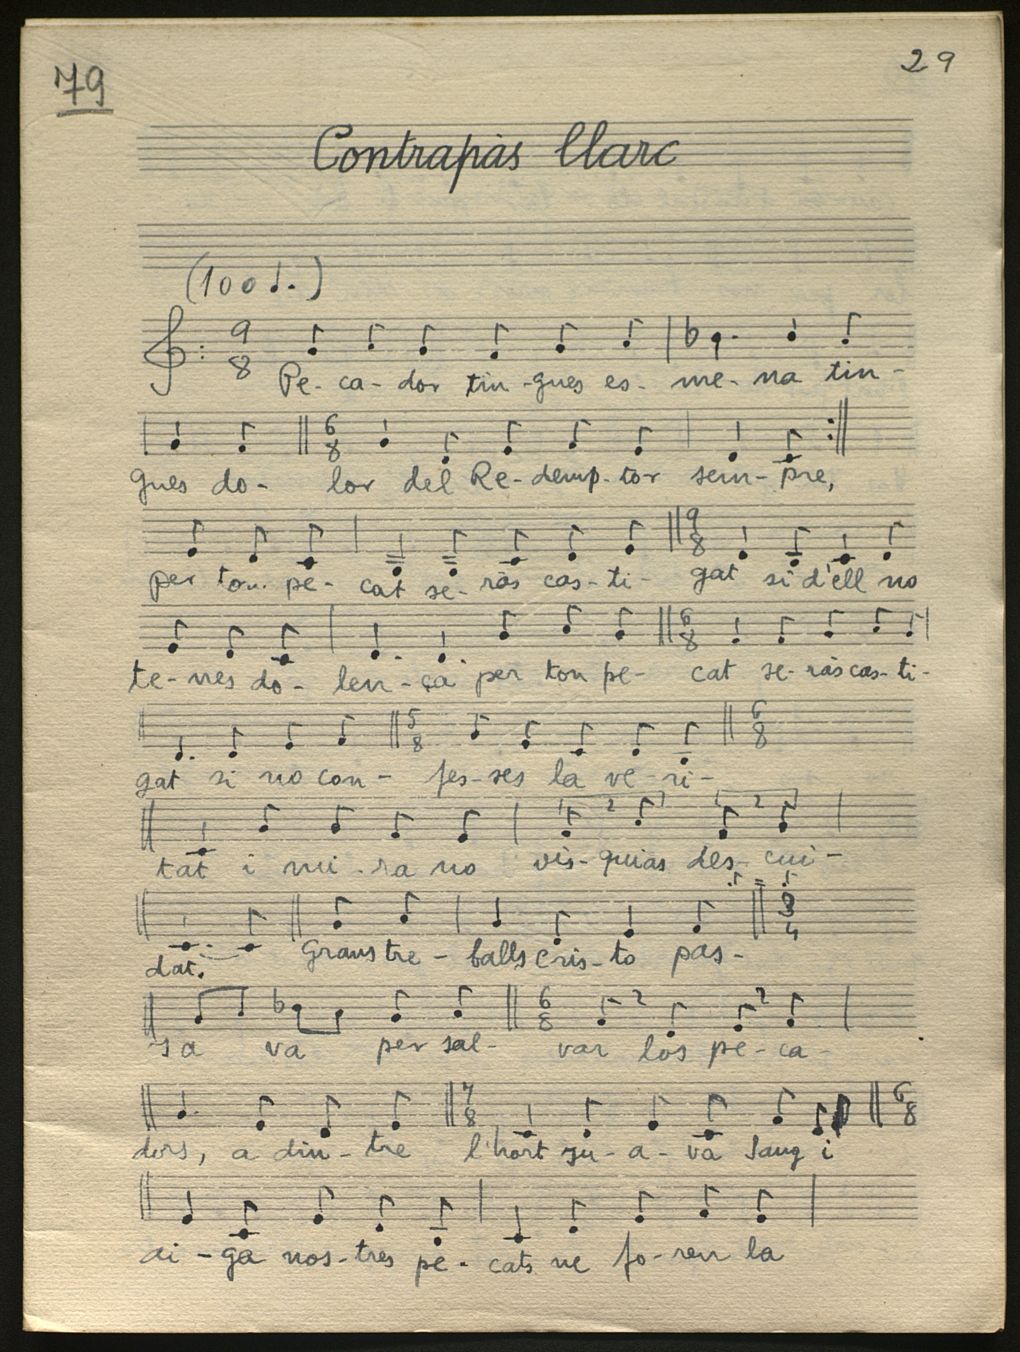 79
29
Contrapàs llarc
(100 ♩.)
9 8
Pe- ca- dor tin- gues es- me- na tin-
6 8
gues do- lor del Re- demp- tor sem- pre,
9 8
per ton pe- cat se- ràs cas- ti- gat si d'ell no
6 8
te- nes do- len- ça per ton pe- cat se- ràs cas- ti-
5 8 6 8
gat si no con- fes- ses la ve- ri-
2 2
tat i mi- ra no vis- quias des- cui-
3 4
dat. Grans tre- balls cris- to pas-
6 8 2 2
sa va per sal- var los pe- ca-
7 8 6 8
dors, a din- tre l'hort su- a- va sang i
ai- ga nos- tres pe- cats ne fo- ren la